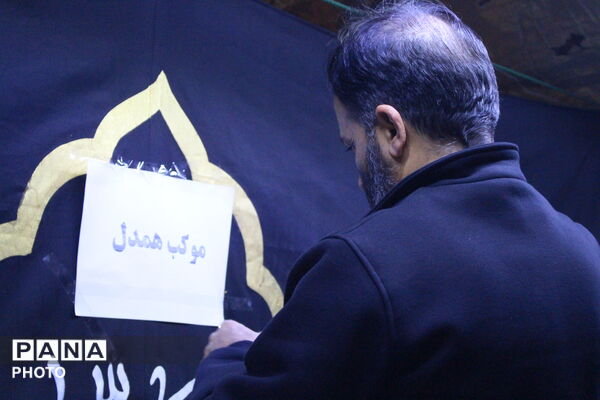 موکب همدل
PANA
PHOTO